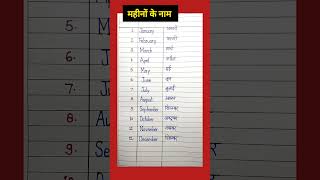 महीनों के नाम
1. January जनवरी
2. February फरवरी
3. March मार्च
4. April अप्रैल
5. May मई
6. June जून
7. July जुलाई
8. August अगस्त
9. September सितम्बर
10. October अक्टूबर
11. November नवम्बर
12. December दिसम्बर